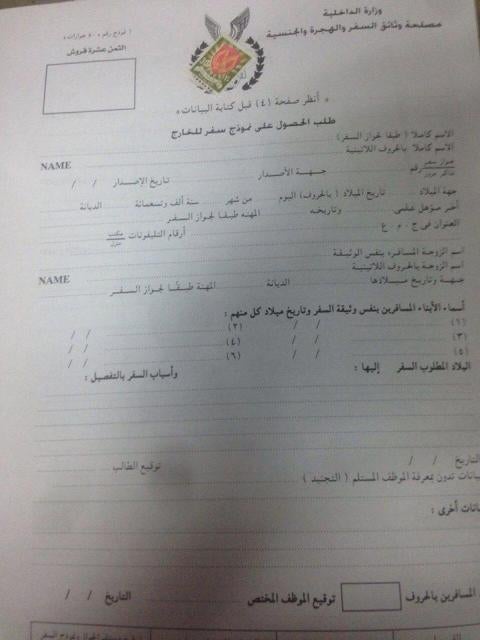 وزارة الداخلية
مصلحة وثائق السفر والهجرة والجنسية
( نموذج رقم ٤٠ جوازات )
الثمن عشرة قروش
« أنظر صفحة (٤) قبل كتابة البيانات »
طلب الحصول على نموذج سفر للخارج
الاسم كاملا ( طبقا لجواز السفر )
الاسم كاملا بالحروف اللاتينية NAME
جواز سفر رقم جهة الأصدار تاريخ الإصدار / /
تذاكر مرور
جهة الميلاد تاريخ الميلاد ( بالحروف) اليوم من شهر سنة ألف وتسعمائة الديانة
آخر مؤهل علمى وتاريخه المهنه طبقا لجواز السفر
العنوان فى ج ٠ م ٠ ع أرقام التليفونات مكتب
منزل
اسم الزوجة المسافره بنفس الوثيقة
اسم الزوجة بالحروف اللاتينية NAME
جهة وتاريخ ميلادها الديانة المهنة طبقا لجواز السفر
أسماء الأبناء المسافرين بنفس وثيقة السفر وتاريخ ميلاد كل منهم :
(١) / / (٢) / /
(٣) / / (٤) / /
(٥) / / (٦) / /
البلاد المطلوب السفر إليها : وأسباب السفر بالتفصيل :
التاريخ / / توقيع الطالب
بيانات تدون بمعرفة الموظف المستلم ( التجنيد )
بيانات أخرى :
المسافرين بالحروف توقيع الموظف المختص التاريخ / /